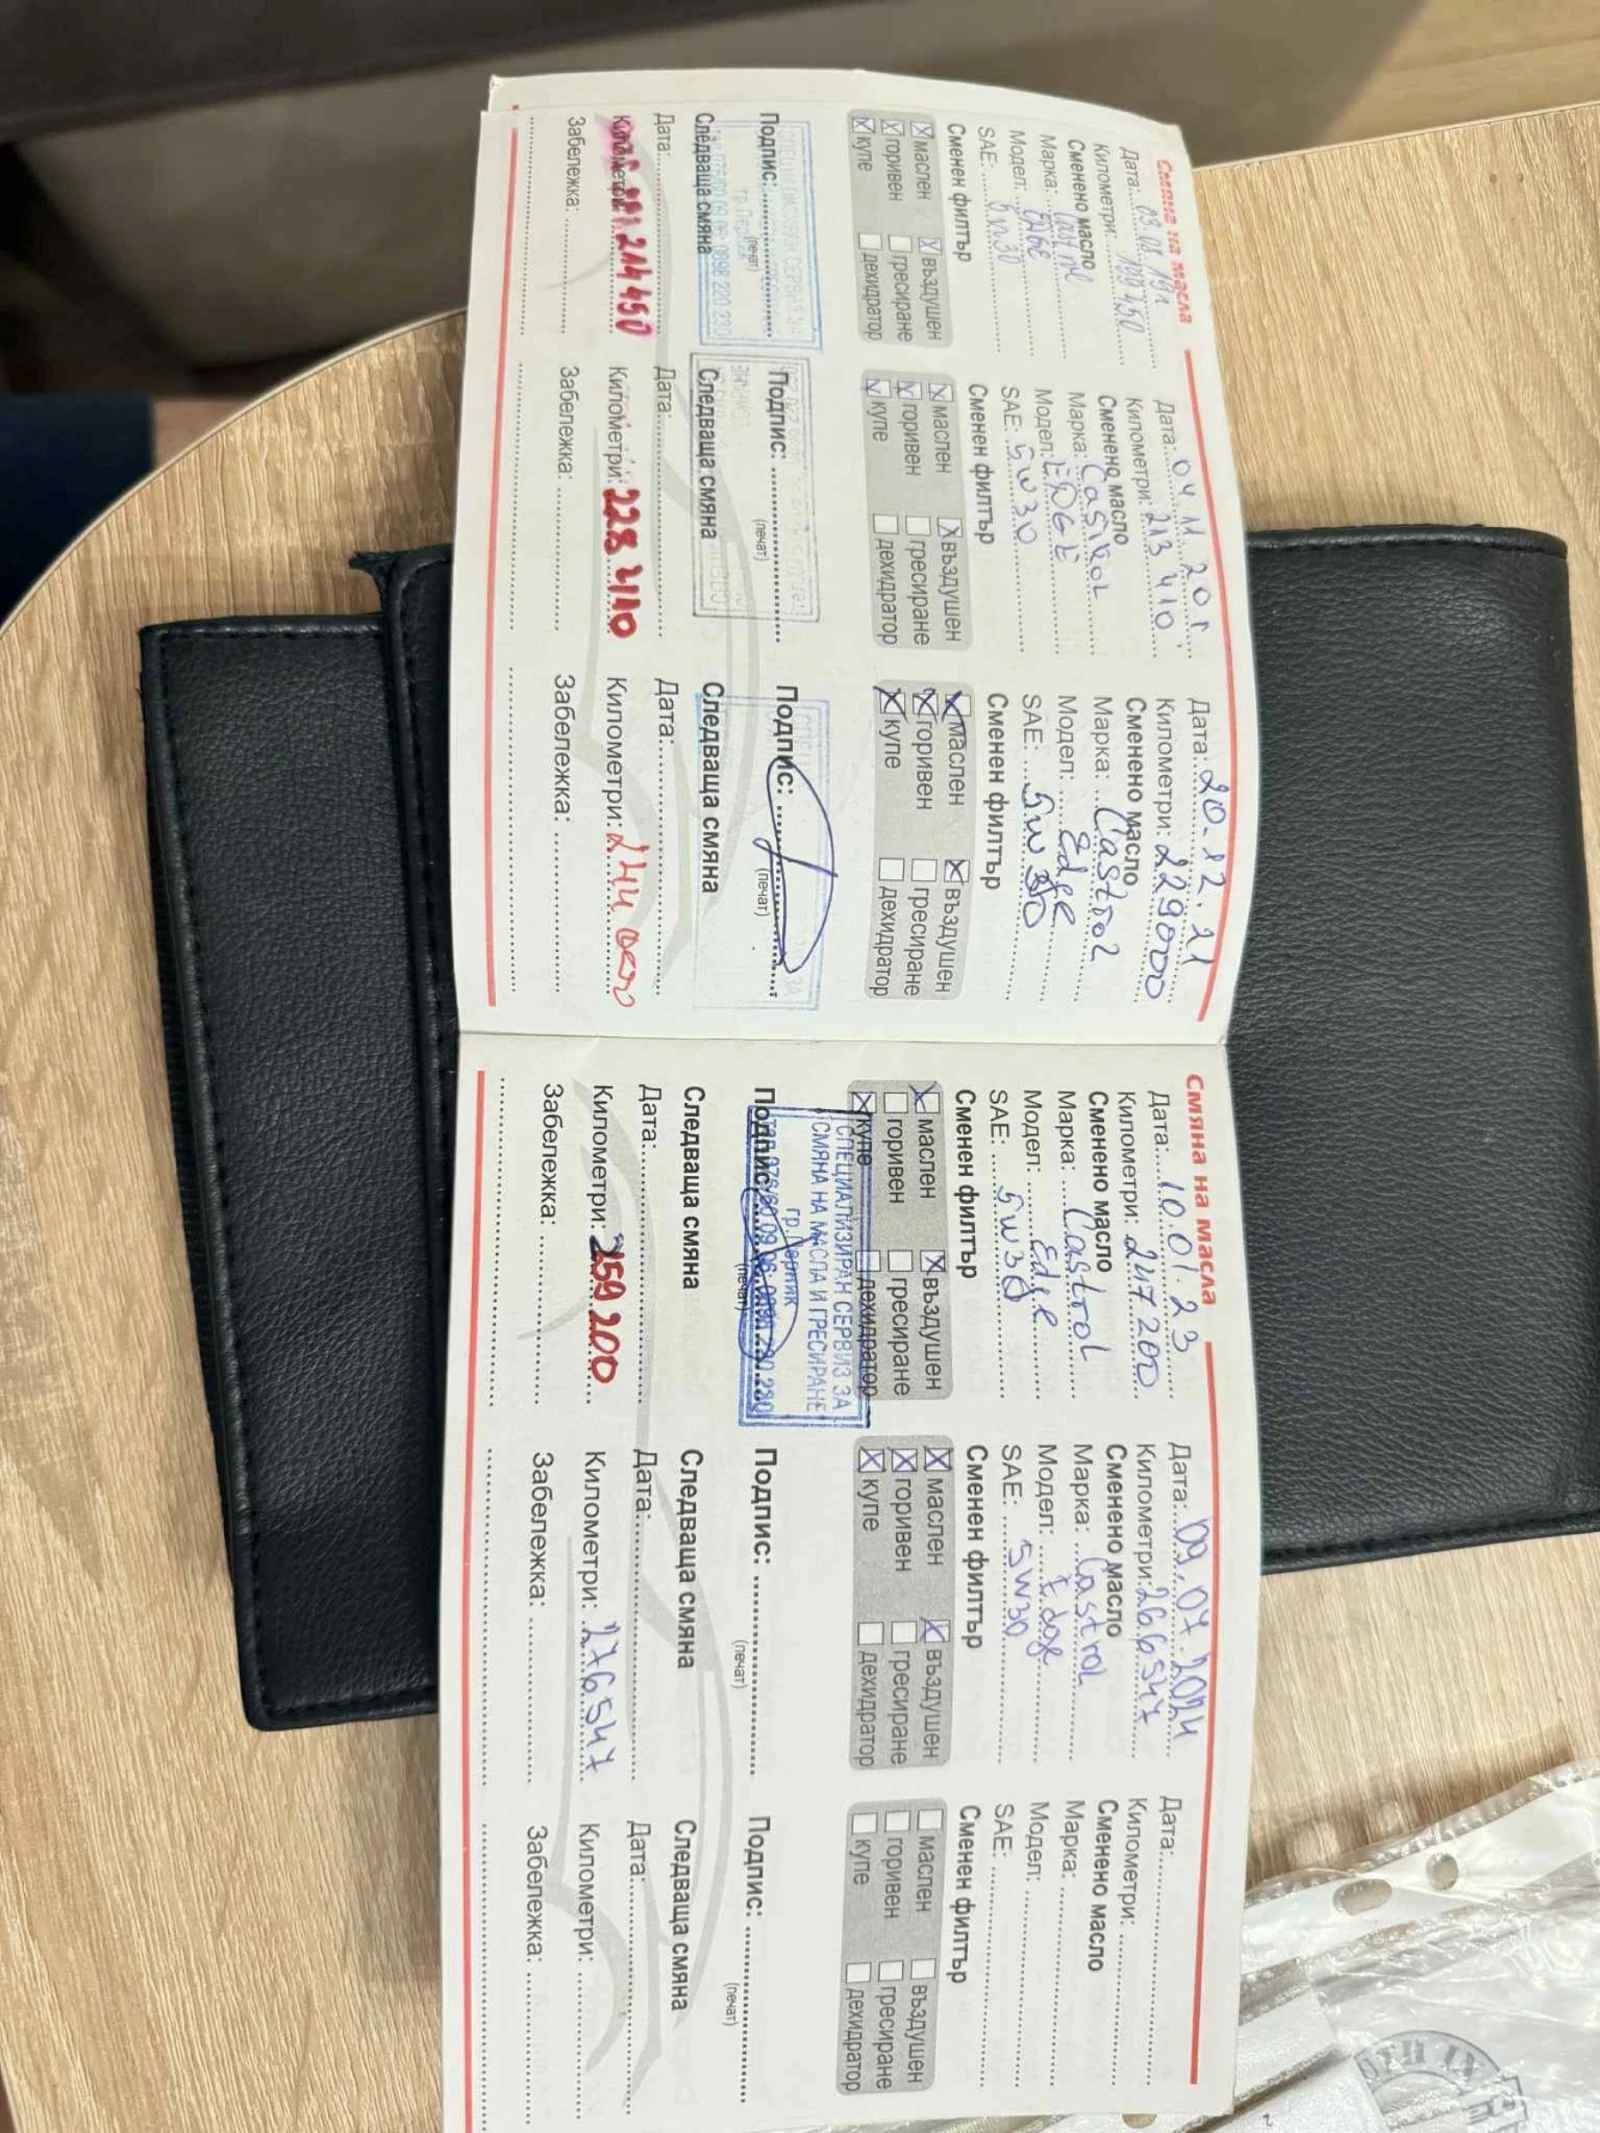 Смяна на масла
Дата: 09.08.19г.
Километри: 199450
Сменено масло
Марка: Castrol
Модел: Edge
SAE: 5w30
Сменен филтър
маслен въздушен
горивен гресиране
купе дехидратор
Подпис:
(печат)
гр.Перник
0898 220 230
Следваща смяна
Дата:
Километри: 214450
Забележка:
Дата: 04.11.20г.
Километри: 213410
Сменено масло
Марка: Castrol
Модел: EDGE
SAE: 5w30
Сменен филтър
маслен въздушен
горивен гресиране
купе дехидратор
Подпис:
(печат)
Следваща смяна
Дата:
Километри: 228410
Забележка:
Дата: 20.12.21
Километри: 229000
Сменено масло
Марка: Castrol
Модел: Edge
SAE: 5w30
Сменен филтър
маслен въздушен
горивен гресиране
купе дехидратор
Подпис:
(печат)
Следваща смяна
Дата:
Километри: 244000
Забележка:
Смяна на масла
Дата: 10.01.23
Километри: 247200
Сменено масло
Марка: Castrol
Модел: Edge
SAE: 5w30
Сменен филтър
маслен въздушен
горивен гресиране
купе дехидратор
СПЕЦИАЛИЗИРАН СЕРВИЗ ЗА
СМЯНА НА МАСЛА И ГРЕСИРАНЕ
гр.Перник
Подпис:
(печат)
Следваща смяна
Дата:
Километри: 259200
Забележка:
Дата: 09.07.2024
Километри: 266547
Сменено масло
Марка: Castrol
Модел: Edge
SAE: 5W30
Сменен филтър
маслен въздушен
горивен гресиране
купе дехидратор
Подпис:
(печат)
Следваща смяна
Дата:
Километри: 276547
Забележка:
Дата:
Километри:
Сменено масло
Марка:
Модел:
SAE:
Сменен филтър
маслен въздушен
горивен гресиране
купе дехидратор
Подпис:
(печат)
Следваща смяна
Дата:
Километри:
Забележка: